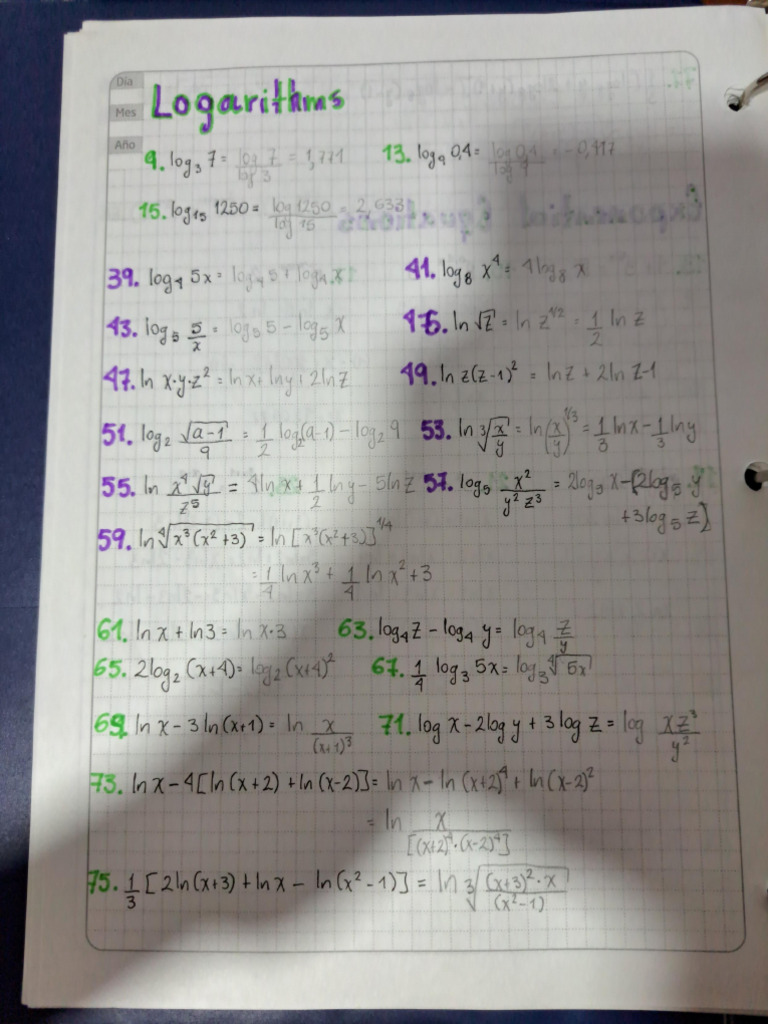 Día
Mes
Año
Logarithms
9. log₃ 7 = log 7 / log 3 = 1,771
13. log₉ 0,4 = log 0,4 / log 9 = -0,417
15. log₁₅ 1250 = log 1250 / log 15 = 2,633
39. log₄ 5x = log₄ 5 + log₄ x
41. log₈ x⁴ = 4 log₈ x
43. log₅ 5/x = log₅ 5 - log₅ x
45. ln √z = ln z^(1/2) = 1/2 ln z
47. ln x·y·z² = ln x + ln y + 2 ln z
49. ln z(z-1)² = ln z + 2 ln z-1
51. log₂ √(a-1) / 9 = 1/2 log₂(a-1) - log₂ 9
53. ln ³√(x/y) = ln (x/y)^(1/3) = 1/3 ln x - 1/3 ln y
55. ln x⁴√y / z⁵ = 4 ln x + 1/2 ln y - 5 ln z
57. log₅ x² / y² z³ = 2 log₅ x - [2 log₅ y
+ 3 log₅ z]
59. ln ⁴√(x³(x²+3)) = ln [x³(x²+3)]^(1/4)
= 1/4 ln x³ + 1/4 ln x² + 3
61. ln x + ln 3 = ln x·3
63. log₄ z - log₄ y = log₄ z/y
65. 2 log₂ (x+4) = log₂ (x+4)²
67. 1/4 log₃ 5x = log₃ ⁴√(5x)
69. ln x - 3 ln (x+1) = ln x / (x+1)³
71. log x - 2 log y + 3 log z = log xz³ / y²
73. ln x - 4 [ln (x+2) + ln (x-2)] = ln x - ln (x+2)⁴ + ln (x-2)²
= ln x / [(x+2)⁴·(x-2)⁴]
75. 1/3 [2 ln (x+3) + ln x - ln (x²-1)] = ln ³√((x+3)²·x / (x²-1))